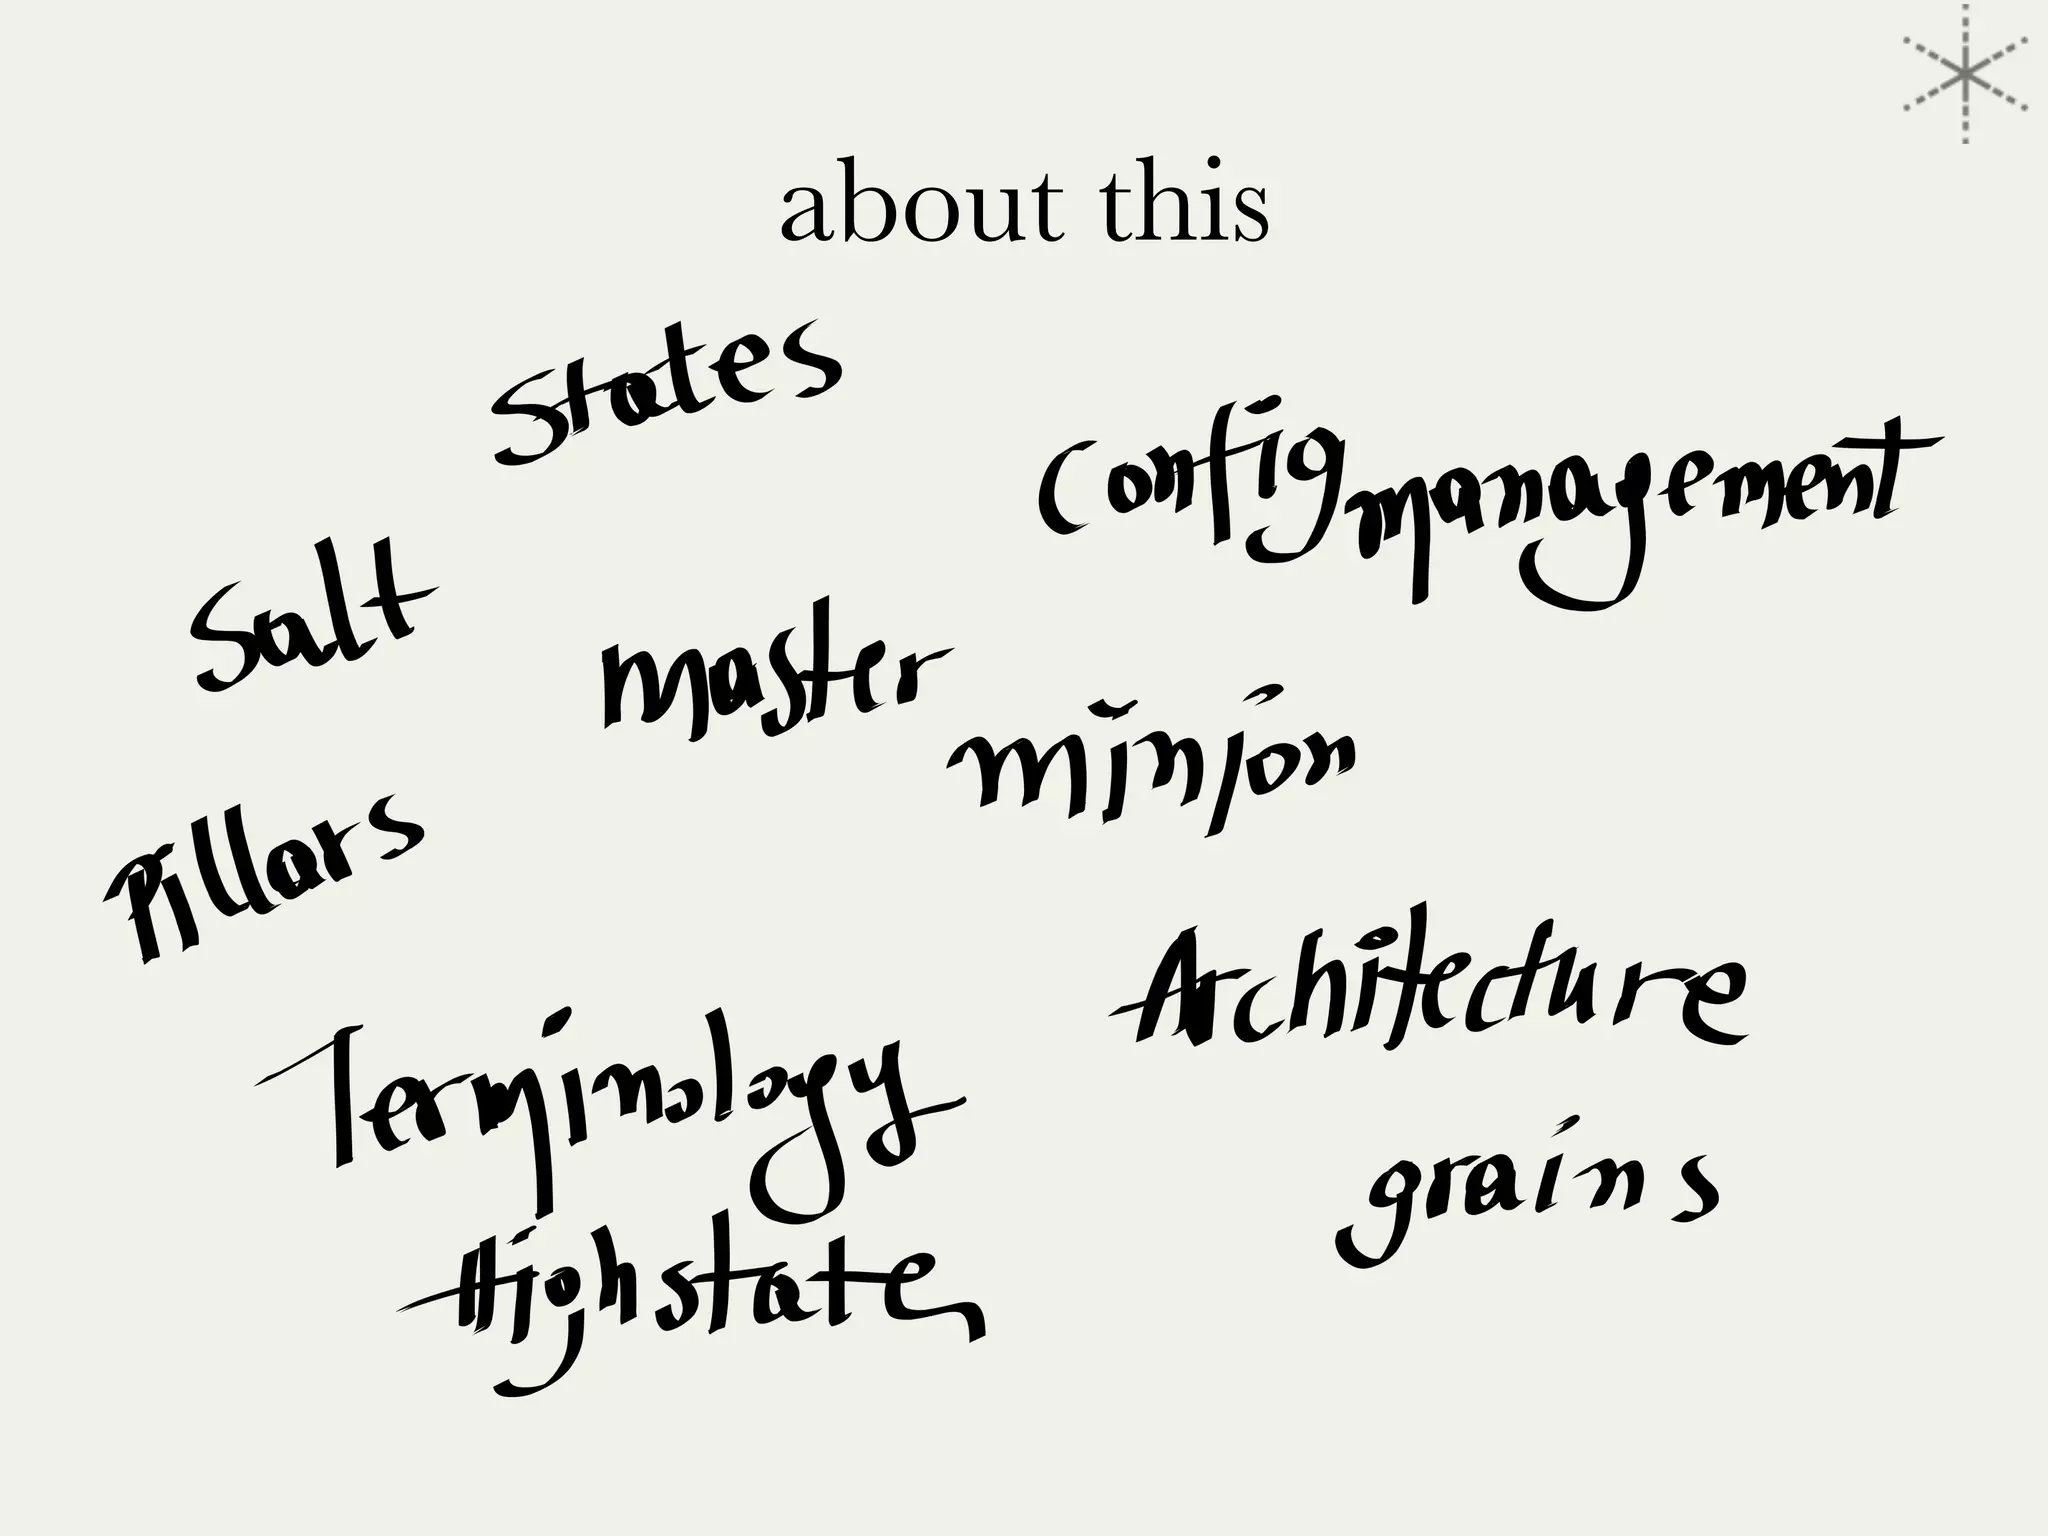 about this
States
Config management
Salt
Master
minion
Pillars
Architecture
Terminology
grains
Highstate